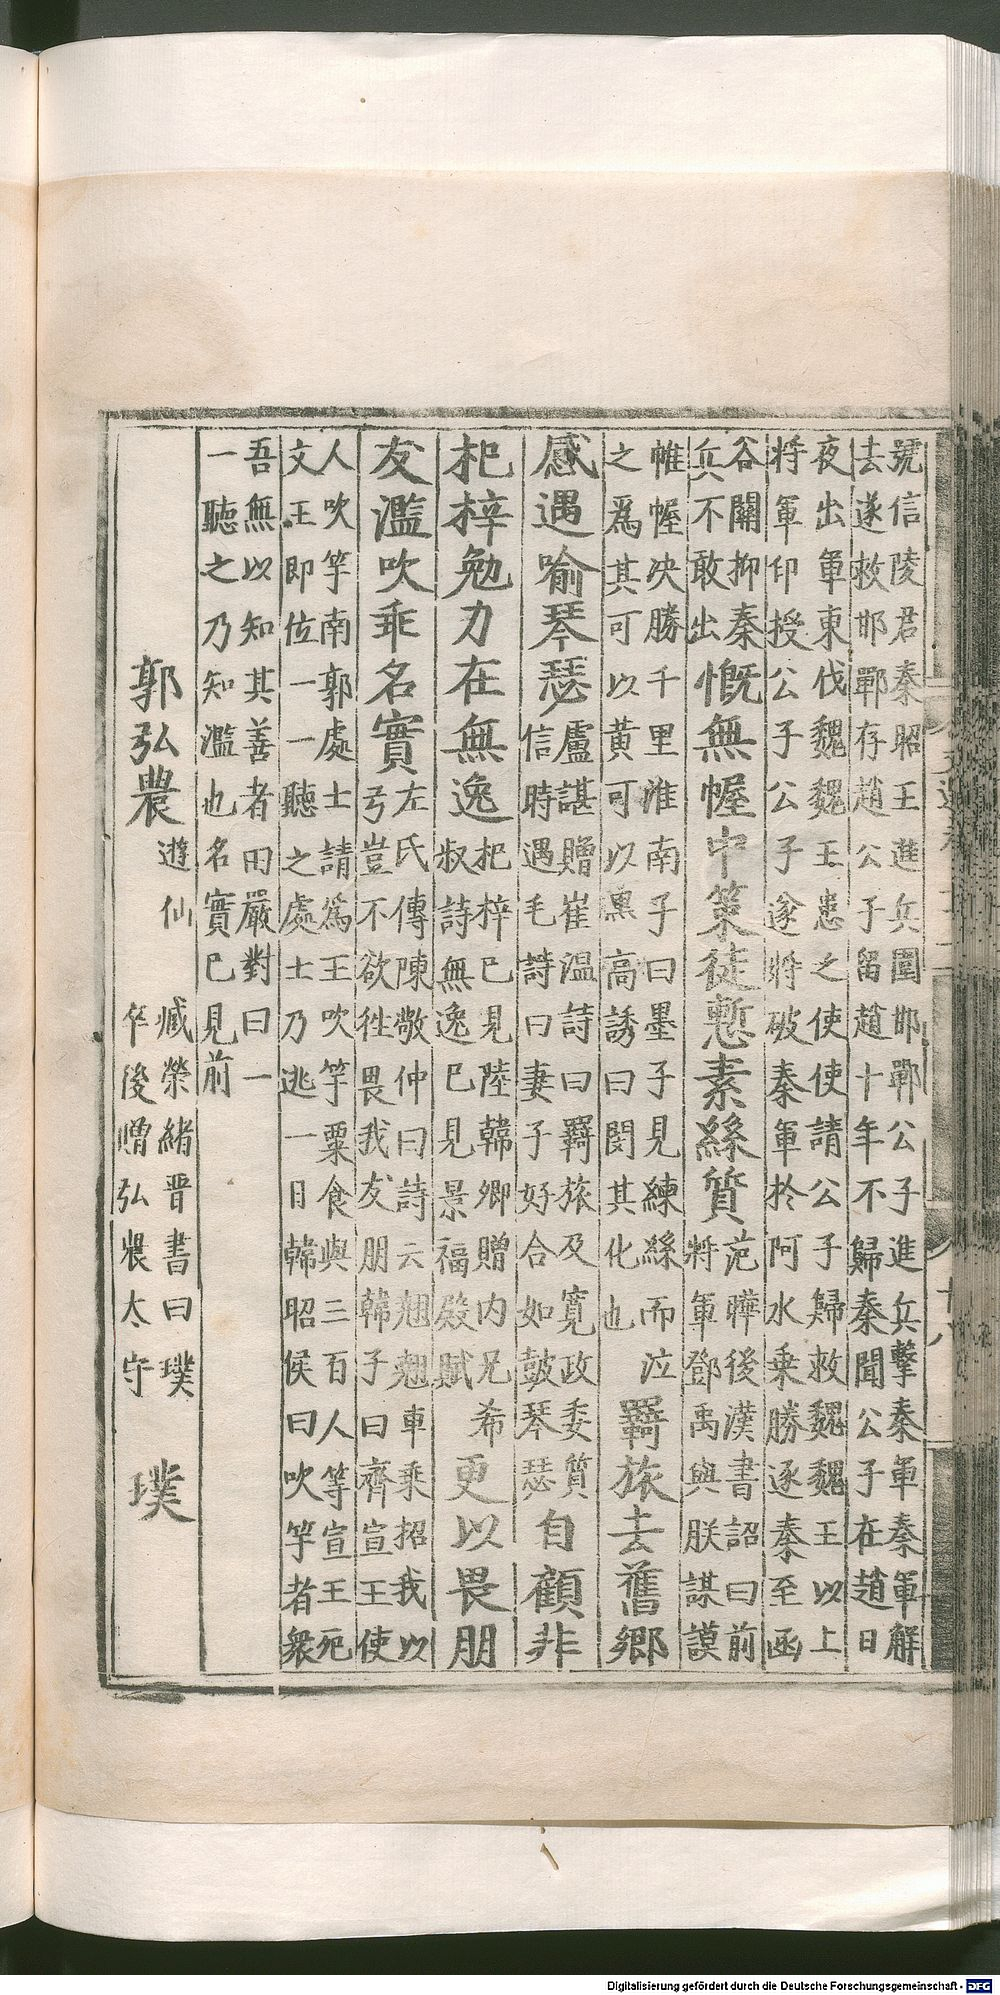 號信陵君秦昭王進兵圍邯鄲公子進兵擊秦軍秦軍解
去遂救邯鄲存趙公子留趙十年不歸秦聞公子在趙日
夜出軍東伐魏魏王患之使使請公子歸救魏魏王以上
將軍印授公子公子遂將破秦軍於阿水乗勝逐秦至函
谷關抑秦
兵不敢出
慨無幄中策徒慙素絲質
范曄後漢書詔曰前
將軍鄧禹與朕謀謨
帷幄决勝千里淮南子曰墨子見練絲而泣
之爲其可以黄可以黒高誘曰閔其化也
羇旅去舊鄉
感遇喻琴瑟
盧諶贈崔温詩曰羇旅及寛政委質
信時遇毛詩曰妻子好合如鼓琴瑟
自顧非
杞梓勉力在無逸
杞梓已見陸韓卿贈内兄希
叔詩無逸已見景福殿賦
更以畏朋
友濫吹乖名實
左氏傳陳敬仲曰詩云翹翹車乗招我以
弓豈不欲徃畏我友朋韓子曰齊宣王使
人吹竽南郭處士請爲王吹竽粟食與三百人等宣王死
文王即位一一聽之處士乃逃一曰韓昭侯曰吹竽者衆
吾無以知其善者田嚴對曰一
一聽之乃知濫也名實已見前
郭弘農
遊仙
臧榮緒晋書曰璞
卒後贈弘農太守
璞
十八
Digitalisierung gefördert durch die Deutsche Forschungsgemeinschaft - DFG